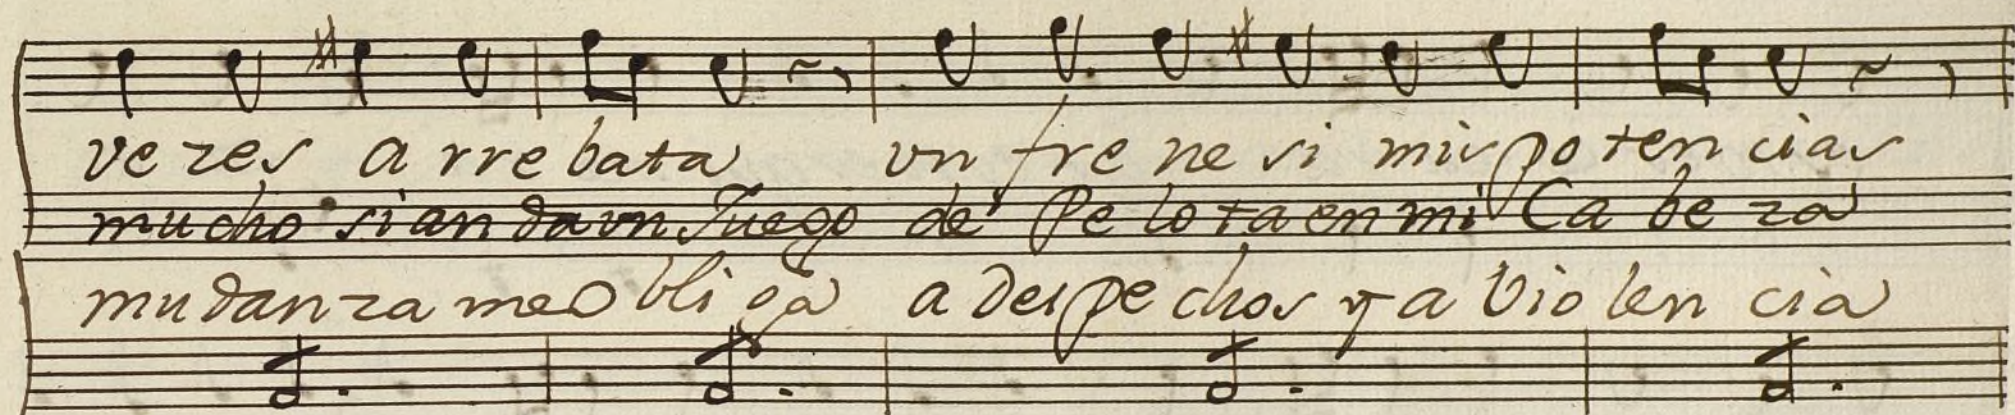 vezes arrebata vn frenesi mis potencias
mucho si anda vn Juego de Pelota en mi Cabeza
mudanza me obliga a despechos y a violencia